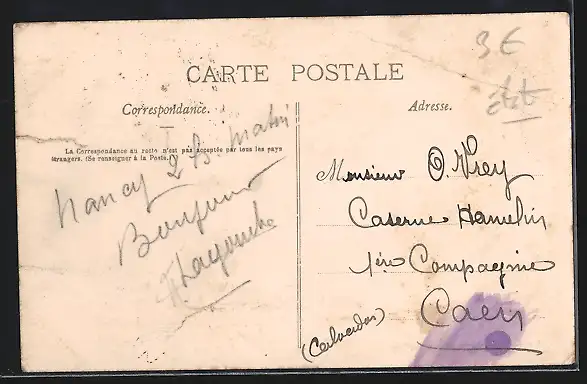 3 €
état
CARTE POSTALE
Correspondance.
Adresse.
La Correspondance au recto n'est pas acceptée par tous les pays
étrangers. (Se renseigner à la Poste.)
Nancy 2 h. Matin
Bonjour
Monsieur O. Vrey
Caserne Hamelin
1ère Compagnie
Caen
(Calvados)